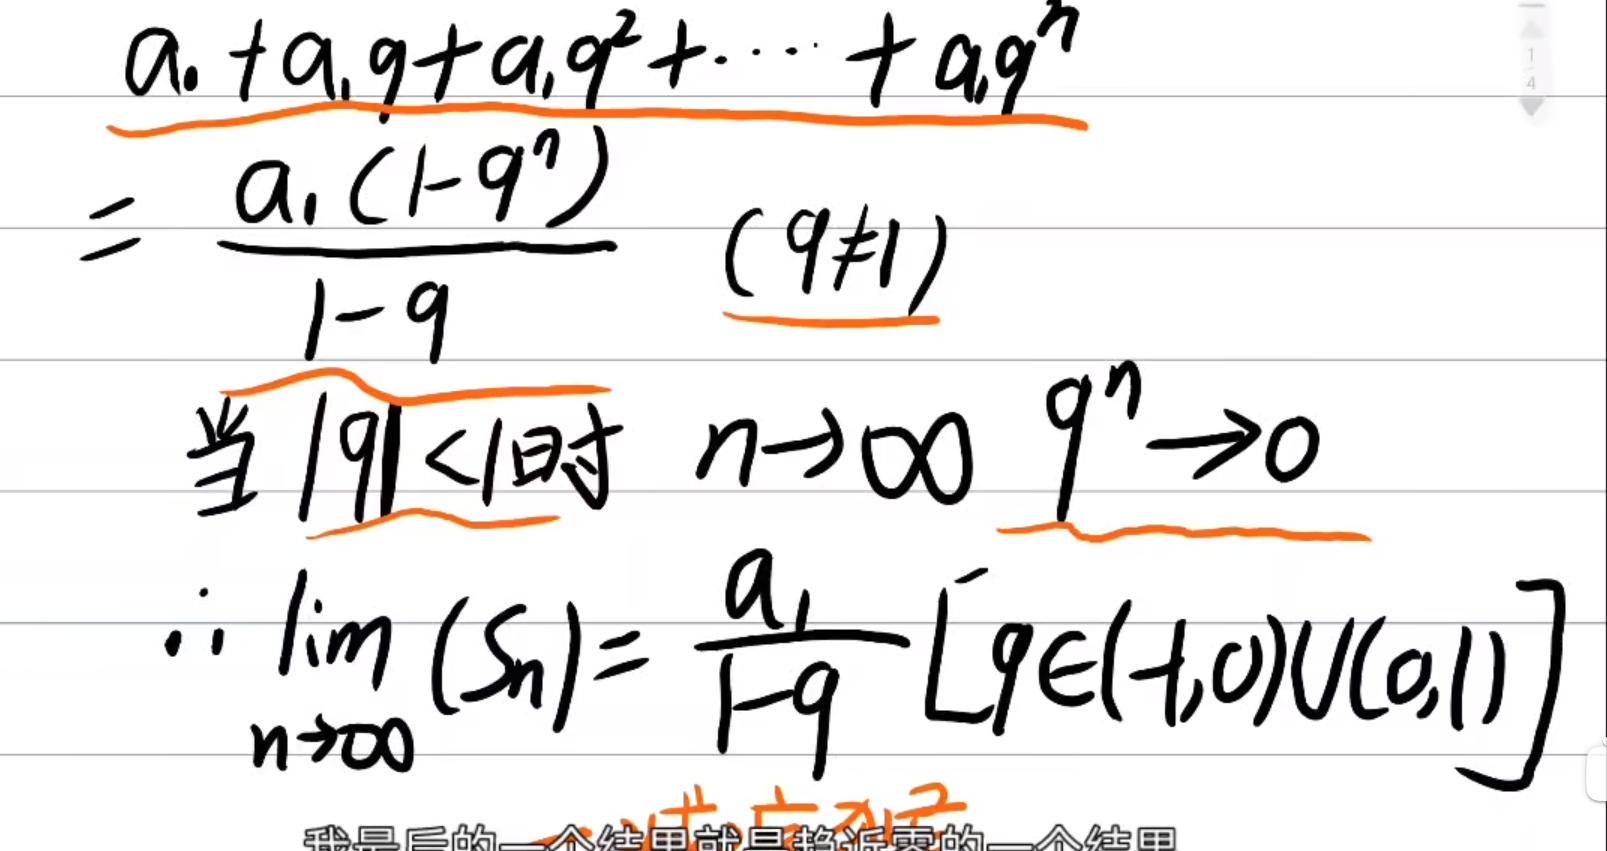 a₁+a₁q+a₁q²+‥‥+a₁qⁿ
= a₁(1-qⁿ)/(1-q) (q≠1)
当|q|<1时 n→∞ qⁿ→0
∴ lim n→∞ (Sn)= a₁/(1-q) [q∈(-1,0)∪(0,1)]
我最后的一个结果就是趋近零的一个结果
1
4